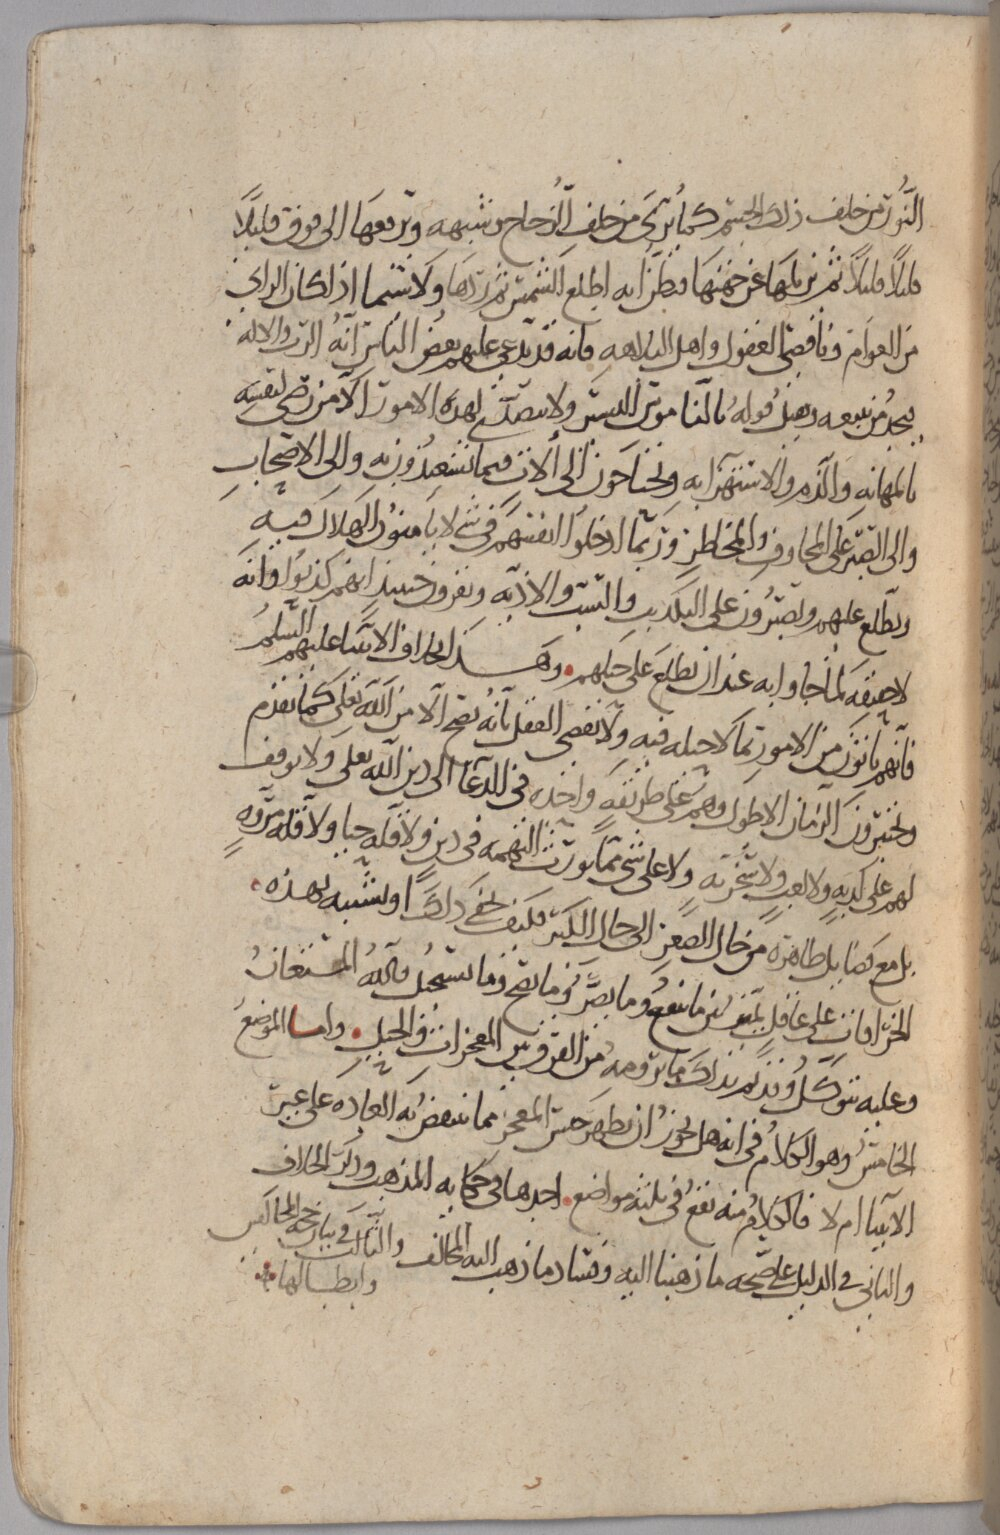 النُّور من خلف ذلك الجسم كما يُرَى من خلف الزُّجاج وشبهه وترفعها الى فوق قليلًا
قليلًا قليلًا ثم يزيلها عن جهتها فيظن انه اطلع الشمس ثم ردها ولا سيما اذا كان الراي
من العوام وناقصي العقول واهل البلاهه فانه قد يدعي عليهم بعض الناس انه الرب والاله
فيجد من يتبعه ويقبل قوله بالناموس واللبس ولا يتصدى لهذه الامور الا من رضي لنفسه
بالمهانه والذم والاستهزا به ويحتاجون الى آلات فيما يشعبذون به والى الاصحاب
والى الصبر على المخاوف والمخاطر وربما ادخلوا انفسهم في شي لا يامنون الهلاك فيه
ويطلع عليهم ويصبرون على التكذيب والسب والاذيه ويقرون حينئذ انهم كذبوا وانه
لا حقيقه لما جاوا به عند ان يطلع على حيلهم وهذا بخلاف الانبيا عليهم السلم
فانهم ياتون من الامور بما لا حيله فيه ولا يقضي العقل بانه يصح الا من الله تعالى كما تقدم
ويختبرون الزمان الاطول وهم على طريقه واحده في الدعا الى دين الله تعلى ولا يوقف
لهم على كذبه ولا لعب ولا سخريه ولا على شي مما يورث التهمه في دين ولا قله حيا ولا قله مروه
بل مع فضايل ظاهره من حال الصغر الى حال الكبر فكيف يخفى ذلك او يشبه بهذه
الخرافات على عاقل يميز بين ما ينفع وما يضر وما يصح وما يستحيل والله المستعان
وعليه نتوكل وقد تم بذلك ما نرومه من الفرق بين المعجزات والحيل واما الموضع
الخامس وهو الكلام في انه هل يجوز ان يظهر جنس المعجز مما تنتقض به العاده على غير
الانبيا ام لا فالكلام منه يقع في ثلثه مواضع احدها في حكايه المذهب وذكر الخلاف
والثاني في الدليل على صحه ما ذهبنا اليه وفساد ما ذهب اليه المخالف والثالث في بيان حجه المخالفين
وابطالها